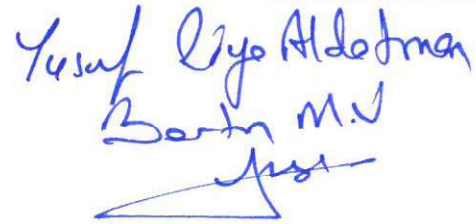 Yusuf Ziya Aldatmaz
Bartın M.V